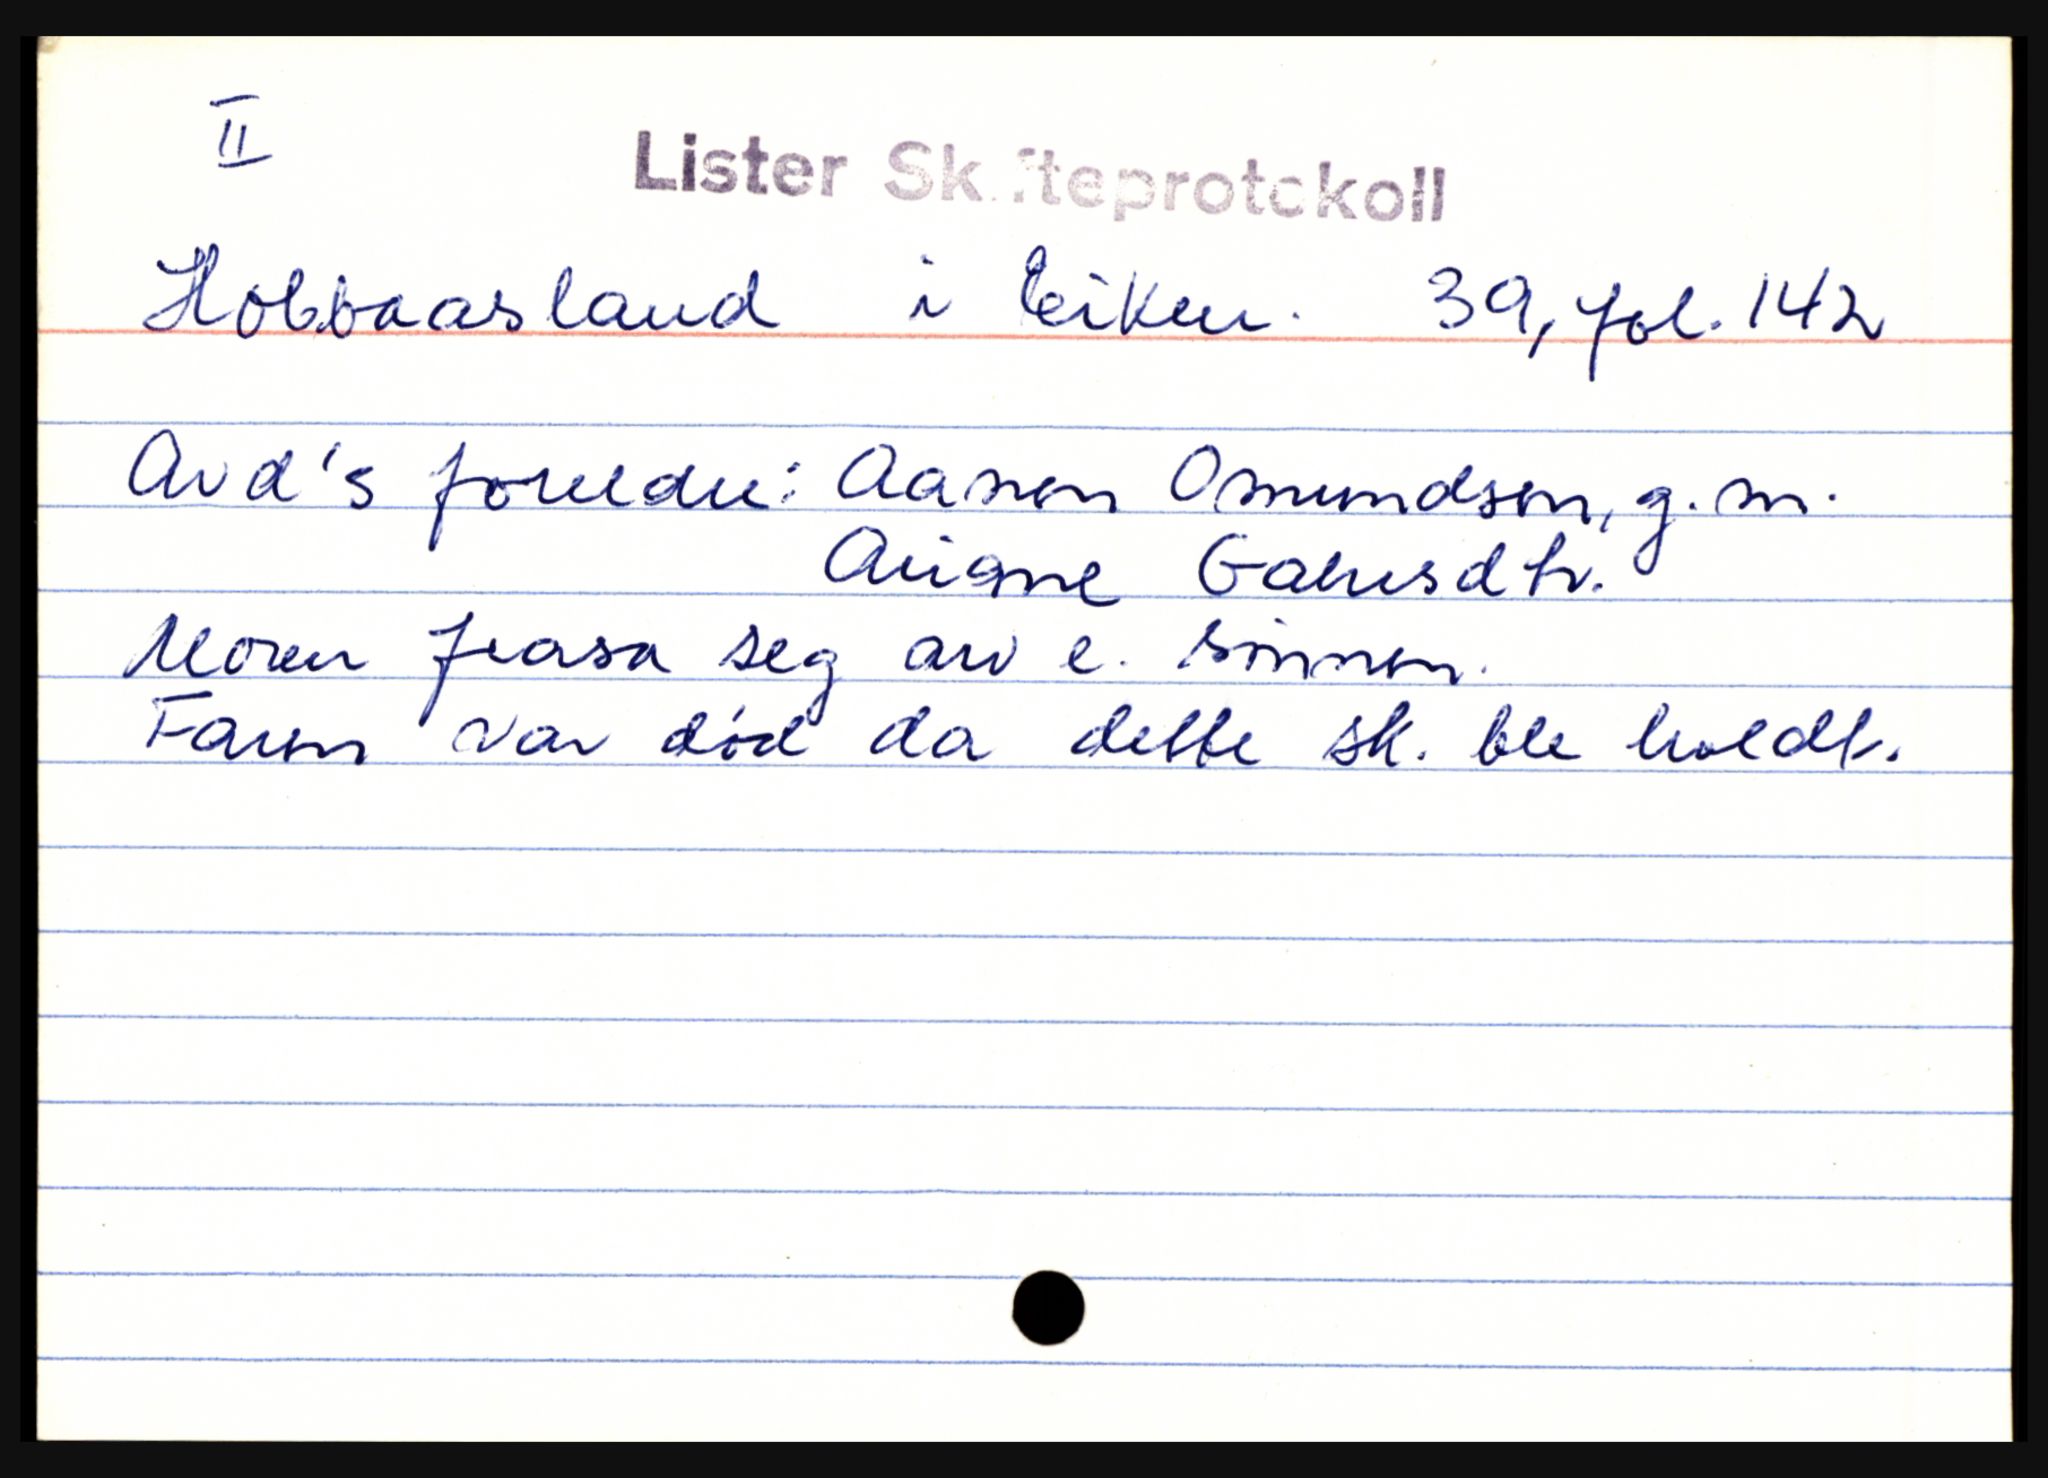 II
Lister Skifteprotokoll
Hobbaasland i Eiken. 39, fol. 142
Avd's foreldre: Aanen Omundsen, g. m.
Ariane Gabrisdtr.
Moren frasa seg arv e. sønnen.
Faren var død da dette sk. ble holdt.